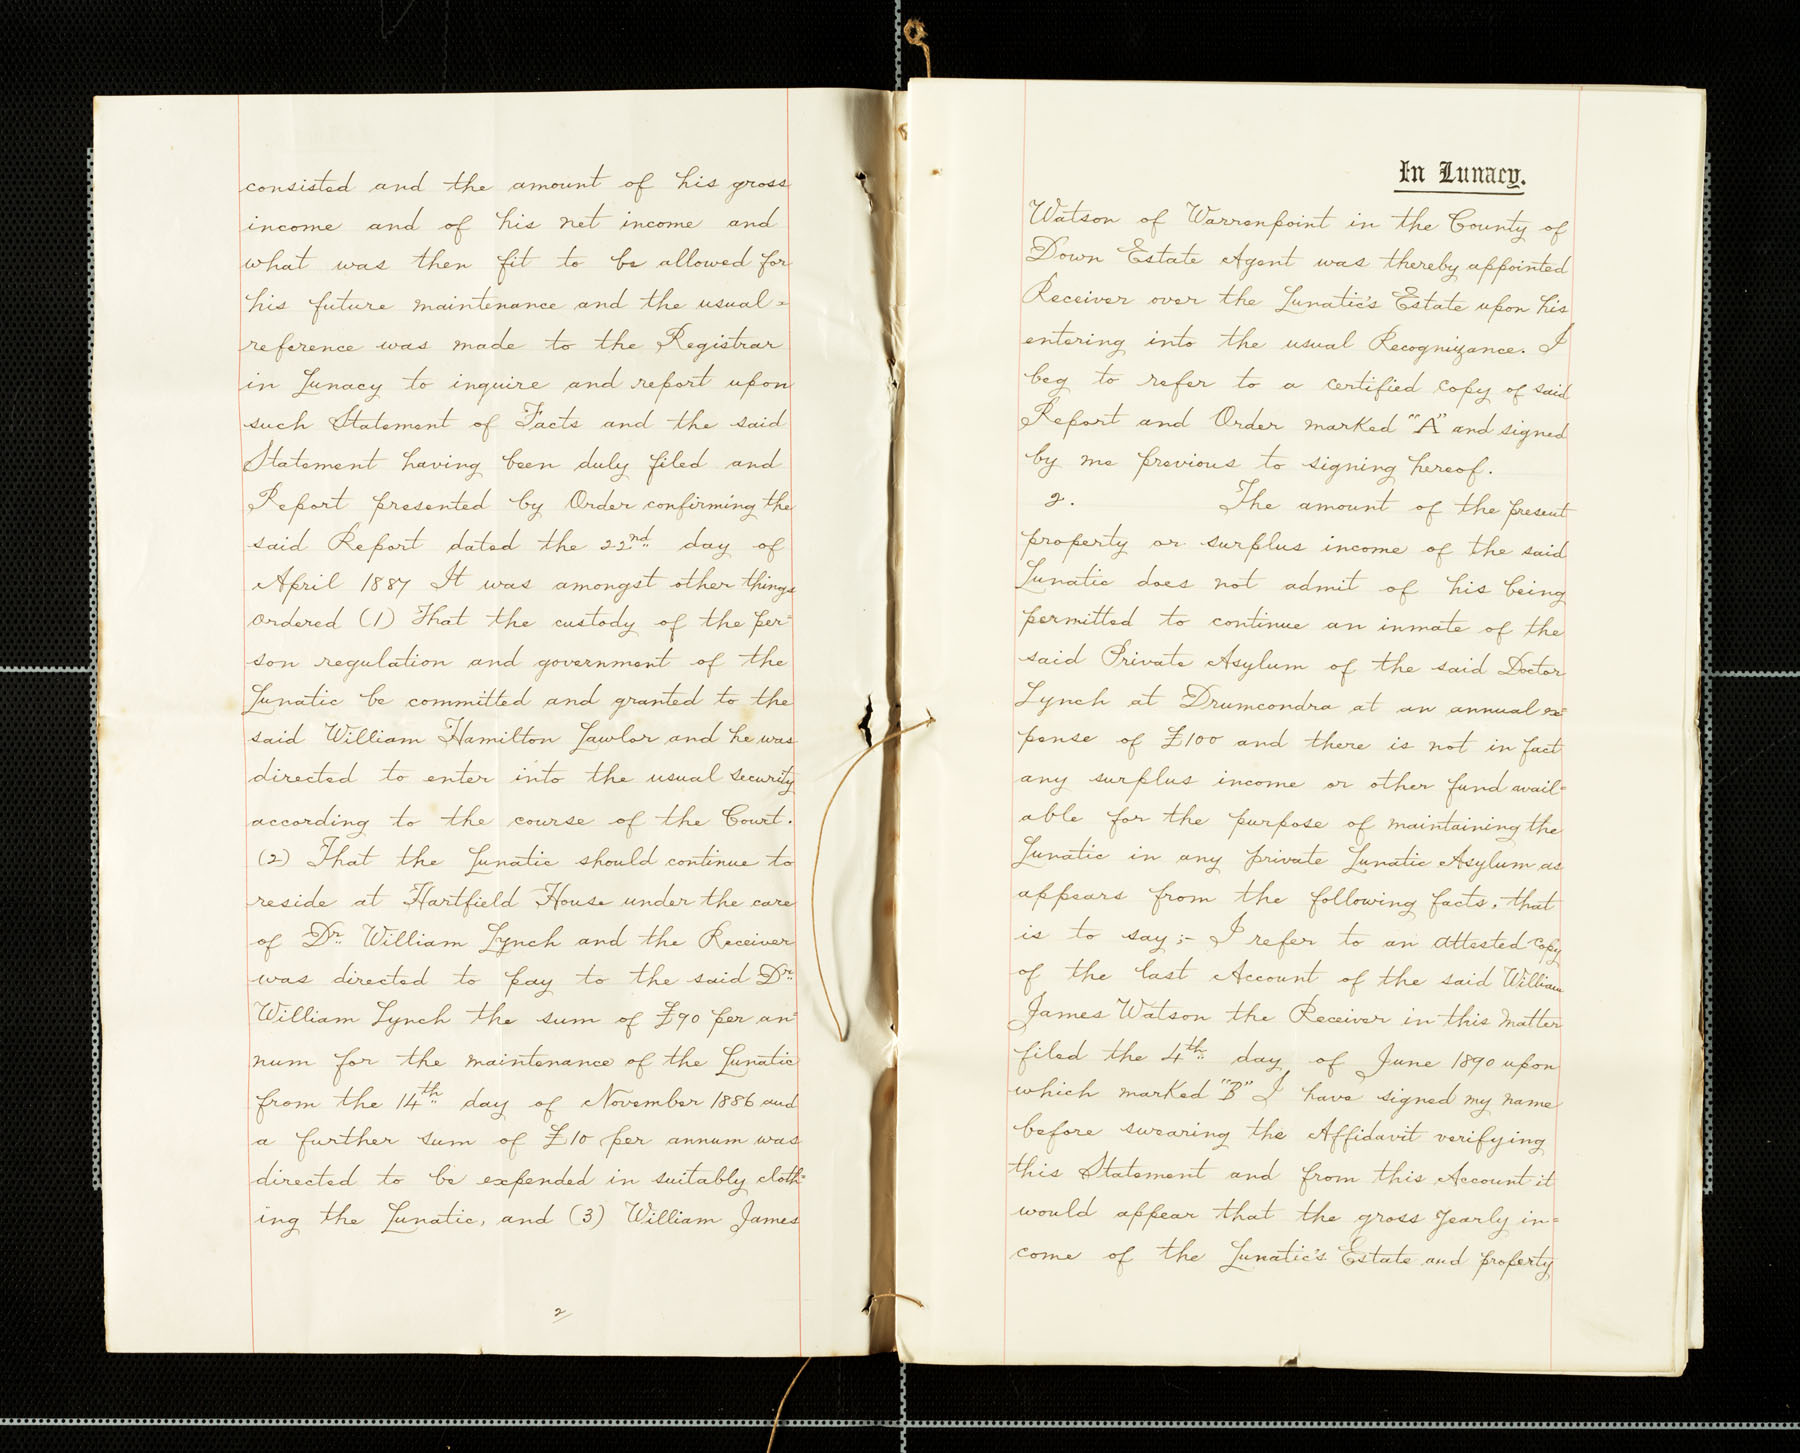 consisted and the amount of his gross
income and of his net income and
what was then fit to be allowed for
his future maintenance and the usual =
reference was made to the Registrar
in Lunacy to inquire and report upon
such Statement of Facts and the said
Statement having been duly filed and
Report presented by Order confirming the
said Report dated the 22nd day of
April 1887 It was amongst other things
ordered (1) That the custody of the per=
son regulation and government of the
Lunatic be committed and granted to the
said William Hamilton Lawlor and he was
directed to enter into the usual security
according to the course of the Court.
(2) That the Lunatic should continue to
reside at Hartfield House under the care
of Dr. William Lynch and the Receiver
was directed to pay to the said Dr.
William Lynch the sum of £90 per an=
num for the maintenance of the Lunatic
from the 14th day of November 1886 and
a further sum of £10 per annum was
directed to be expended in suitably cloth=
ing the Lunatic, and (3) William James
2
In Lunacy.
Watson of Warrenpoint in the County of
Down Estate Agent was thereby appointed
Receiver over the Lunatic's Estate upon his
entering into the usual Recognizance. I
beg to refer to a certified copy of said
Report and Order marked "A" and signed
by me previous to signing hereof.
2. The amount of the present
property or surplus income of the said
Lunatic does not admit of his being
permitted to continue an inmate of the
said Private Asylum of the said Doctor
Lynch at Drumcondra at an annual ex=
pense of £100 and there is not in fact
any surplus income or other fund avail=
able for the purpose of maintaining the
Lunatic in any private Lunatic Asylum as
appears from the following facts, that
is to say;- I refer to an attested copy
of the last Account of the said William
James Watson the Receiver in this Matter
filed the 4th day of June 1890 upon
which marked "B" I have signed my name
before swearing the Affidavit verifying
this Statement and from this Account it
would appear that the gross yearly in=
come of the Lunatic's Estate and property